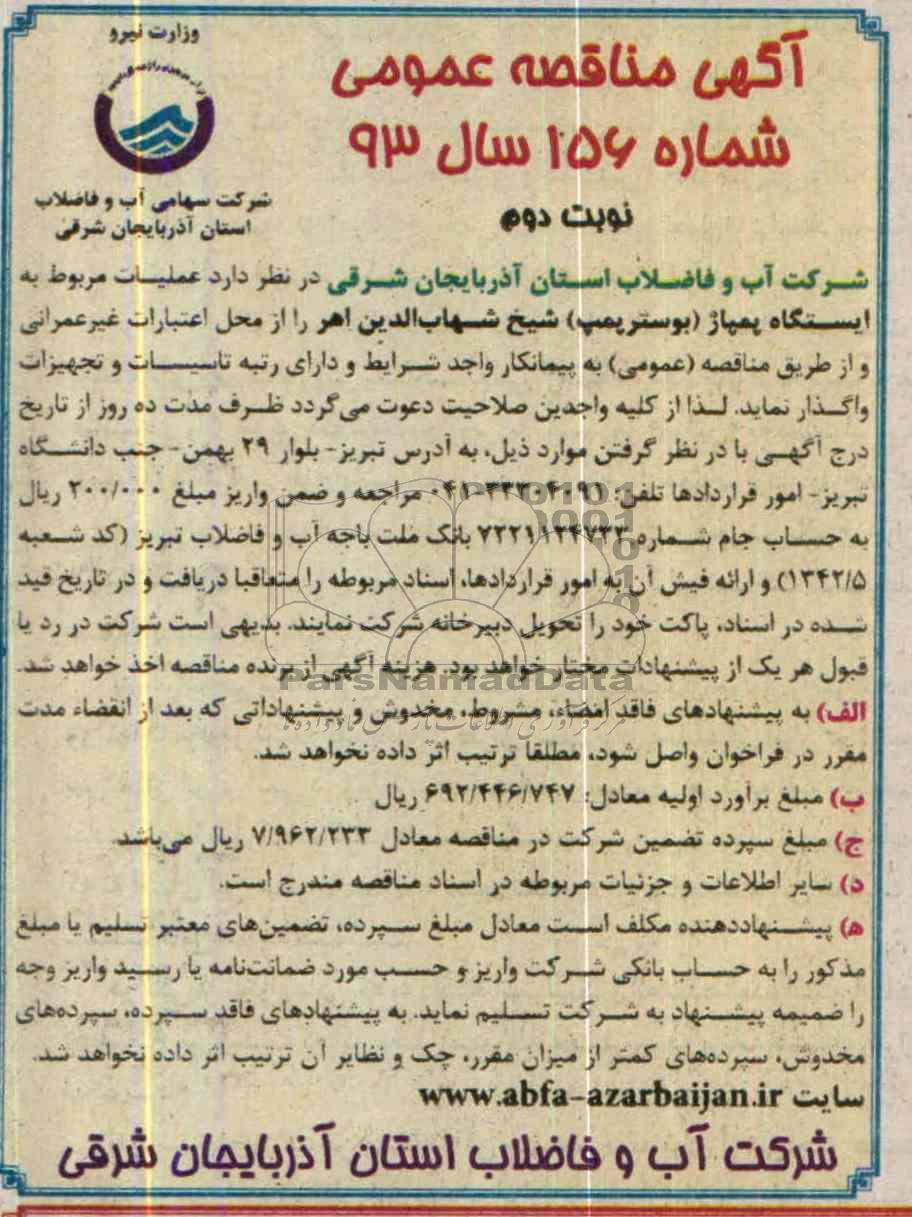 وزارت نیرو
شرکت سهامی آب و فاضلاب
استان آذربایجان شرقی
آگهی مناقصه عمومی
شماره ۱۵۶ سال ۹۳
نوبت دوم
شرکت آب و فاضلاب استان آذربایجان شرقی در نظر دارد عملیات مربوط به
ایستگاه پمپاژ (بوسترپمپ) شیخ شهاب‌الدین اهر را از محل اعتبارات غیرعمرانی
و از طریق مناقصه (عمومی) به پیمانکار واجد شرایط و دارای رتبه تاسیسات و تجهیزات
واگذار نماید. لذا از کلیه واجدین صلاحیت دعوت می‌گردد ظرف مدت ده روز از تاریخ
درج آگهی با در نظر گرفتن موارد ذیل، به آدرس تبریز- بلوار ۲۹ بهمن- جنب دانشگاه
تبریز- امور قراردادها تلفن: ۳۳۳۰۴۰۹۱-۰۴۱ مراجعه و ضمن واریز مبلغ ۲۰۰/۰۰۰ ریال
به حساب جام شماره ۷۲۲۱۱۲۴۷۳۳ بانک ملت باجه آب و فاضلاب تبریز (کد شعبه
۱۳۴۲/۵) و ارائه فیش آن به امور قراردادها، اسناد مربوطه را متعاقبا دریافت و در تاریخ قید
شده در اسناد، پاکت خود را تحویل دبیرخانه شرکت نمایند. بدیهی است شرکت در رد یا
قبول هر یک از پیشنهادات مختار خواهد بود. هزینه آگهی از برنده مناقصه اخذ خواهد شد.
ParsNamadData
الف) به پیشنهادهای فاقد امضاء، مشروط، مخدوش و پیشنهاداتی که بعد از انقضاء مدت
مقرر در فراخوان واصل شود، مطلقا ترتیب اثر داده نخواهد شد.
ب) مبلغ برآورد اولیه معادل: ۶۹۲/۴۴۶/۷۴۷ ریال
ج) مبلغ سپرده تضمین شرکت در مناقصه معادل ۷/۹۶۲/۲۳۳ ریال می‌باشد.
د) سایر اطلاعات و جزئیات مربوطه در اسناد مناقصه مندرج است.
ه) پیشنهاددهنده مکلف است معادل مبلغ سپرده، تضمین‌های معتبر تسلیم یا مبلغ
مذکور را به حساب بانکی شرکت واریز و حسب مورد ضمانت‌نامه یا رسید واریز وجه
را ضمیمه پیشنهاد به شرکت تسلیم نماید. به پیشنهادهای فاقد سپرده، سپرده‌های
مخدوش، سپرده‌های کمتر از میزان مقرر، چک و نظایر آن ترتیب اثر داده نخواهد شد.
سایت www.abfa-azarbaijan.ir
شرکت آب و فاضلاب استان آذربایجان شرقی